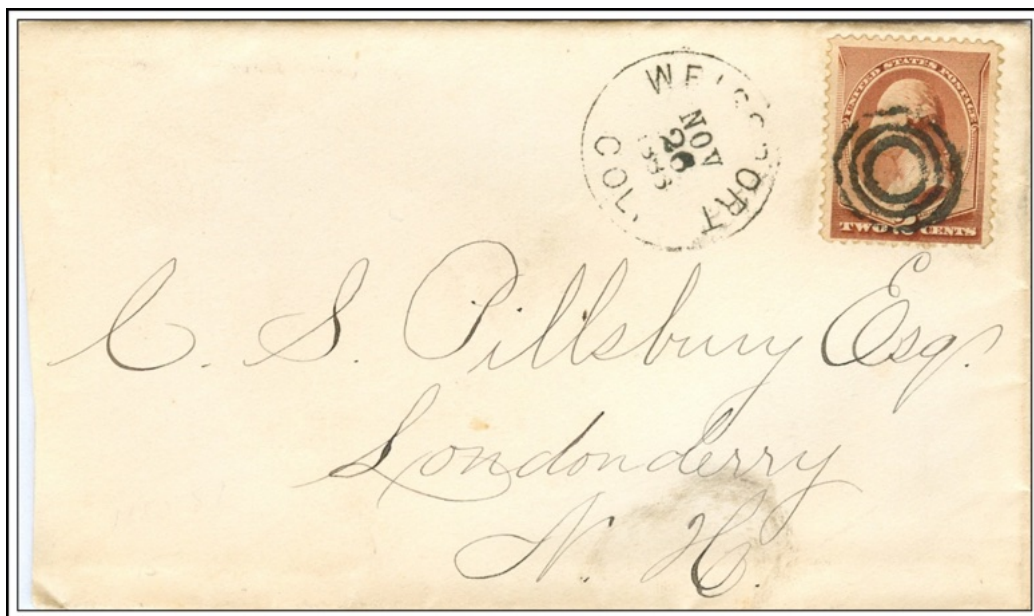 COL.
NOV
26
UNITED STATES POSTAGE
TWO 2 CENTS
C. S. Pillsbury Esq.
Londonderry
N. H.